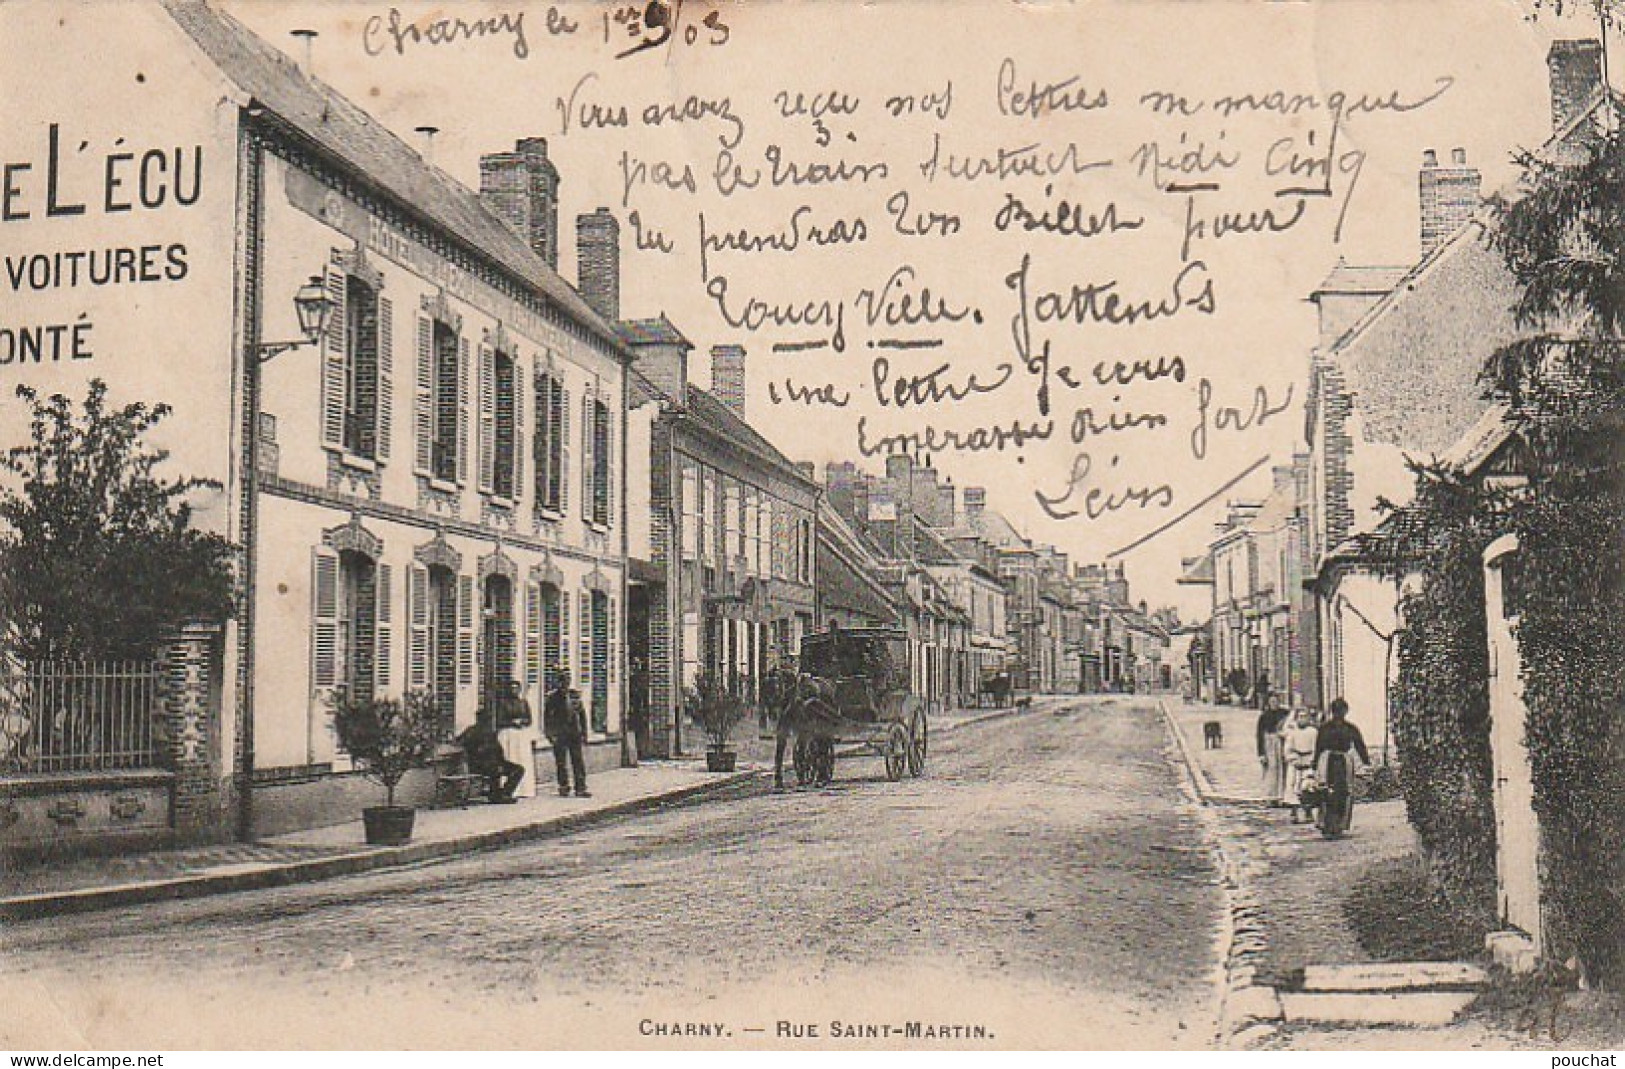 Charny le 1er 9/03
Vous avez reçu nos lettres ne manque
pas le train surtout Midi Cinq
tu prendras ton Billet pour
Toucy Ville. J'attends
une lettre Je vous
Embrasse bien fort
E L'ÉCU
VOITURES
ONTÉ
HÔTEL DE
CHARNY. — RUE SAINT-MARTIN.
pouchat